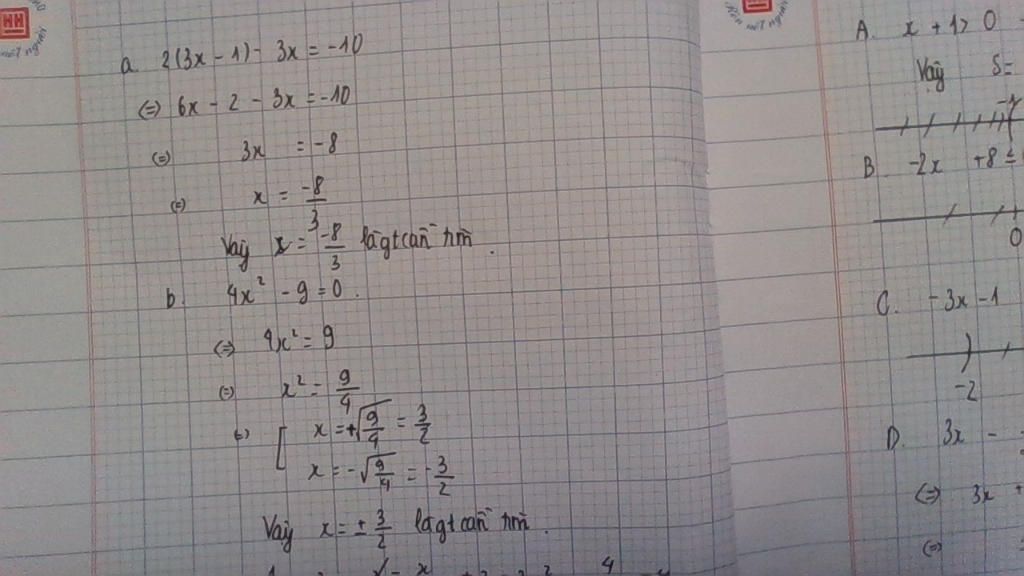 a. 2(3x - 1) - 3x = -10
(=) 6x - 2 - 3x = -10
(=) 3x = -8
(=) x = -8/3
Vaỹ x = -8/3 làgtcañ tìm.
b. 4x² - 9 = 0.
(=) 4x² = 9
(=) x² = 9/4
(=) [ x = +√(9/4) = 3/2
x = -√(9/4) = -3/2
Vaỹ x = ± 3/2 làgtcañ tìm.
A. x + 1 > 0
Vaỹ S =
B. -2x + 8 ≤
0
C. -3x - 1
-2
D. 3x -
(=) 3x +
(=)